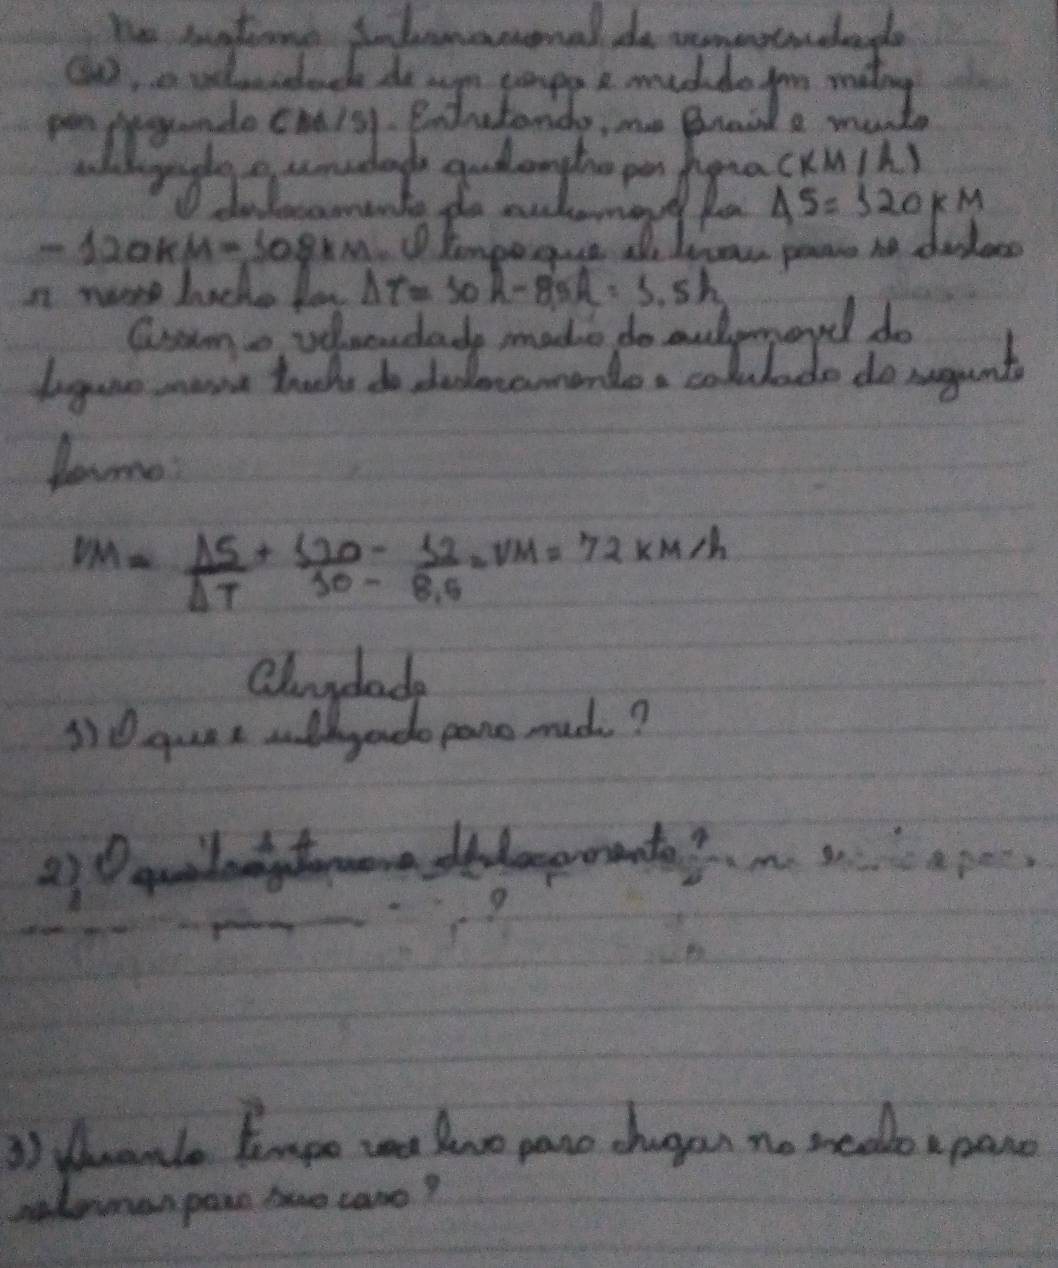 No sistema Internacional de
(SI), a velocidade de um corpo e medido em metro
por segundo (M/S). Entretando, no Brasil e muito
utilizado a unidade quilometro por hora (KM/h)
O deslocamento do automovel foi ΔS= 120KM
- 120KM = 108KM. O tempo que ele levou para se desloca
r nesse trecho foi ΔT= 10h-8,5h= 1,5h
Assim a velocidade media do automovel do
nesse trecho do deslocamento e calculado do segunte
forma:
VM = ΔS/ΔT + 120/10 - 12/8,5 = VM = 72 KM/h
Atividade
1) O que e utilizado para medi?
2) O deslocamento?
3) Quanto tempo voce leva para chegar no e para
retornar para sua casa?